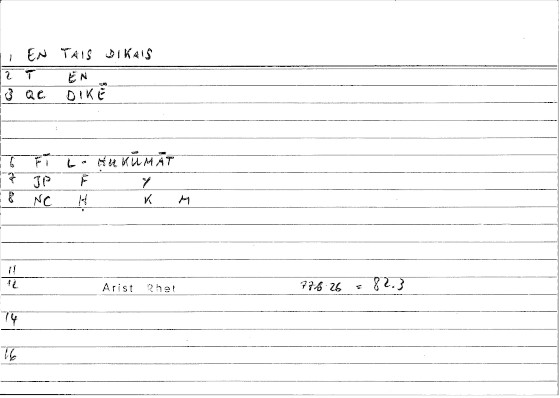 1 EN TAIS DIKAIS
2 T EN
3 QC DIKĒ
6 FĪ L-ḤUKŪMĀT
7 JP F Y
8 NC Ḥ K M
11
12 Arist Rhet 77.6.26 = 82.3
14
16